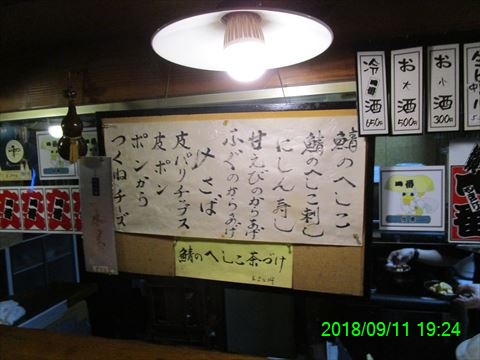 鯖のへしこ
鯖のへしこ刺し
にしん寿し
甘えびのからあげ
ふぐのからあげ
〆さば
皮パリチーズ
皮ポン
ポンから
つくねチーズ
鯖のへしこ茶づけ
冷酒
650円
お酒
大
500円
お酒
小
300円
一番
2018/09/11 19:24